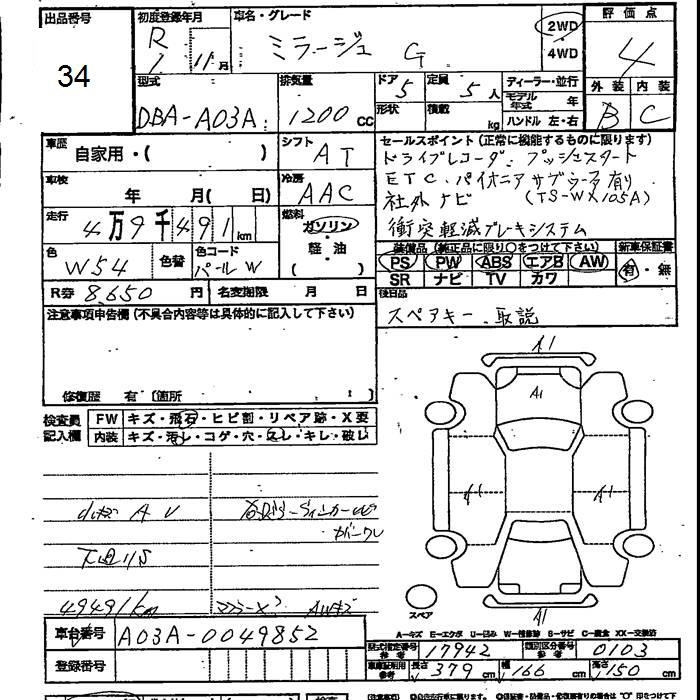 出品番号
34
初度登録年月
R 1 11月
車名・グレード
ミラージュ G
2WD
4WD
評価点
4
外装 内装
B C
型式
DBA-A03A
排気量
1200 CC
ドア 5
形状
定員 5 人
積載 kg
ディーラー・並行
モデル年式 年
ハンドル 左・右
車歴
自家用・( )
シフト
AT
車検
年 月( 日)
冷房
AAC
走行
4万9千491km
燃料
ガソリン
軽・油
( )
色
W54
色替
色コード
パールW
R券 8,650 円
名変期限 月 日
セールスポイント(正常に機能するものに限ります)
ドライブレコーダ、プッシュスタート
ETC、パイオニアサブウーファ有り
社外ナビ (TS-WX105A)
衝突軽減ブレーキシステム
装備品(純正品に限り○をつけて下さい)
PS PW ABS エアB AW
SR ナビ TV カワ
新車保証書
有・無
後日品
スペアキー、取説
注意事項申告欄(不具合内容等は具体的に記入して下さい)
修復歴 有 〔箇所 〕
検査員記入欄
FW キズ・飛石・ヒビ割・リペア跡・X要
内装 キズ・汚レ・コゲ・穴・スレ・キレ・破レ
A U
49491km
AWキズ
A1
A1
A1
A1
A1
スペア
A-キズ E-エクボ U-凹み W-補修跡 S-サビ C-腐食 XX-交換済
車台番号
A03A-0049852
登録番号
型式指定番号 参考
17942
類別区分番号 参考
0103
車庫証明用 参考
長さ 379 cm
幅 166 cm
高さ 150 cm